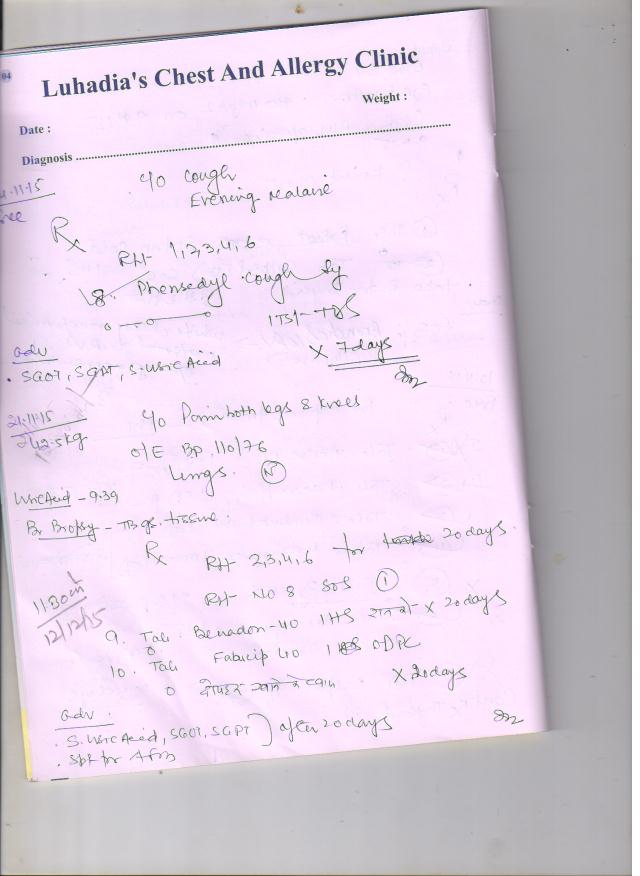 04
Luhadia's Chest And Allergy Clinic
Weight :
Date :
Diagnosis
11.15
c/o Cough
Evening malaise
Rx
RH- 1,2,3,4,6
8. Phensedyl cough Sy
1TSf- TDS
x 7days
adv
. SGOT, SGPT, S. Uric Acid
21.11.15
42.5kg
c/o Pain both legs & knees
O/E BP. 110/76
Lungs. N
Uric Acid - 9.39
Br Biopsy - TB gs. tissue.
Rx RH- 2,3,4,6 for 20 days.
RH- NO 8 SOS 1
1130am
12/12/15
9. Tab. Benadon-40 1 HS रात को- x 20days
10. Tab Fabucip 40 1 ODPC
दोपहर खाने के बाद x 20days
adv.
. S. Uric Acid, SGOT, SGPT ) after 20 days
. Spt for AFB